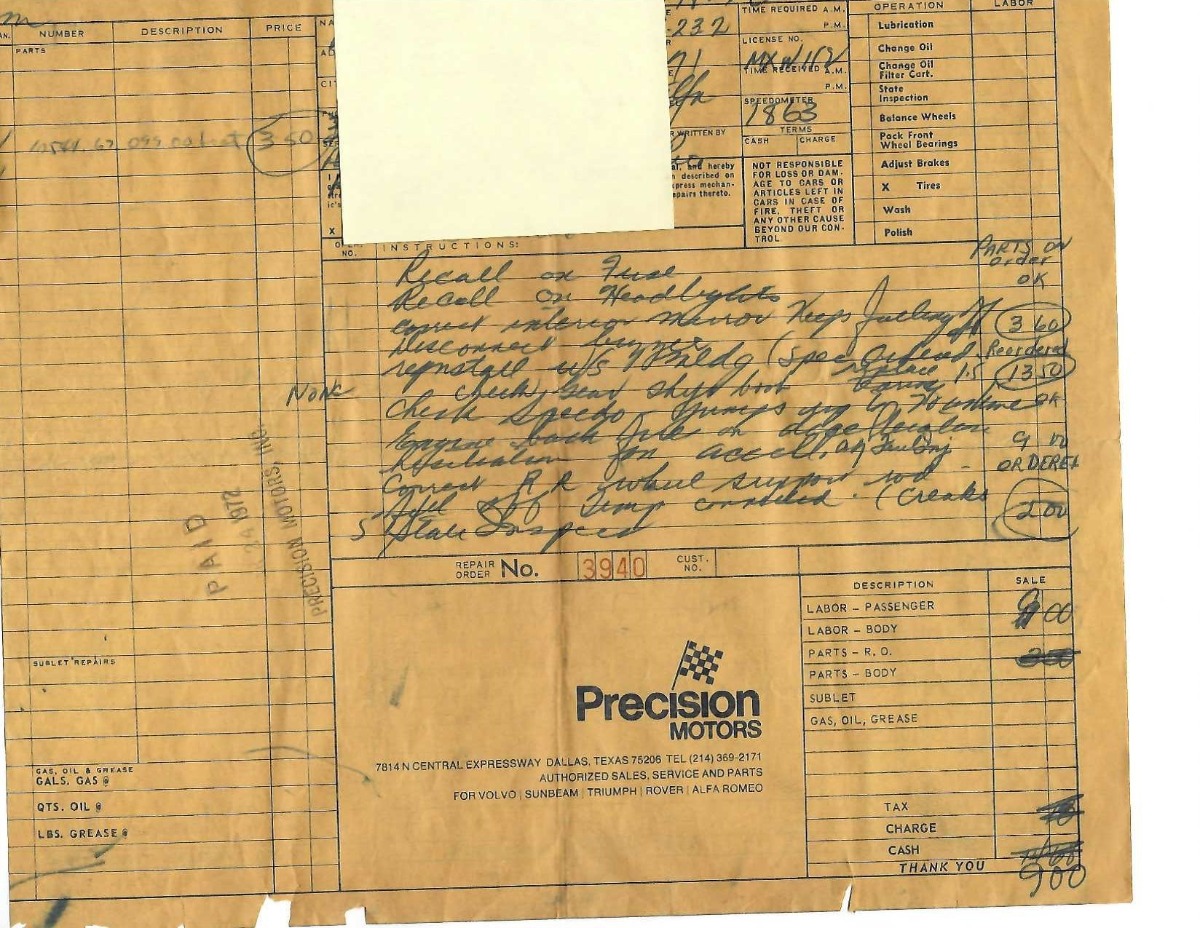 NUMBER DESCRIPTION PRICE
PARTS
3 50
NA
AD
CIT
-232
71
Alfa
WRITTEN BY
al, and hereby
n described on
press mechan-
epairs thereto.
ic's
X
TIME REQUIRED A.M.
P.M.
LICENSE NO.
TIME RECEIVED A.M.
P.M.
SPEEDOMETER
1863
TERMS
CASH CHARGE
NOT RESPONSIBLE
FOR LOSS OR DAM-
AGE TO CARS OR
ARTICLES LEFT IN
CARS IN CASE OF
FIRE, THEFT OR
ANY OTHER CAUSE
BEYOND OUR CON-
TROL
OPERATION LABOR
Lubrication
Change Oil
Change Oil
Filter Cart.
State
Inspection
Balance Wheels
Pack Front
Wheel Bearings
Adjust Brakes
X Tires
Wash
Polish
NO. INSTRUCTIONS:
PARTS ON
order
Recall on Fuse
OK
Recall on Headlights
correct interior mirror Keeps falling off
3 60
Disconnect buzzer
Reordered
reinstall w/s mldg (Spec Ordered
13 50
None
check gear shift boot replace 1.5
Check Speedo Jumps OK
Engine back fire on
for accell.
ORDERED
Correct R R wheel support rod
Temp connected. (Creaks
2 00
5 State Inspect
PAID
24 1972
PRECISION MOTORS, INC.
REPAIR
ORDER No. 3940 CUST.
NO.
Precision
MOTORS
7814 N CENTRAL EXPRESSWAY DALLAS, TEXAS 75206 TEL (214) 369-2171
AUTHORIZED SALES, SERVICE AND PARTS
FOR VOLVO | SUNBEAM | TRIUMPH | ROVER | ALFA ROMEO
SUBLET REPAIRS
GAS, OIL & GREASE
GALS. GAS @
QTS. OIL @
LBS. GREASE @
DESCRIPTION SALE
LABOR – PASSENGER 9 00
LABOR – BODY
PARTS – R. O.
PARTS – BODY
SUBLET
GAS, OIL, GREASE
TAX
CHARGE
CASH
THANK YOU 900